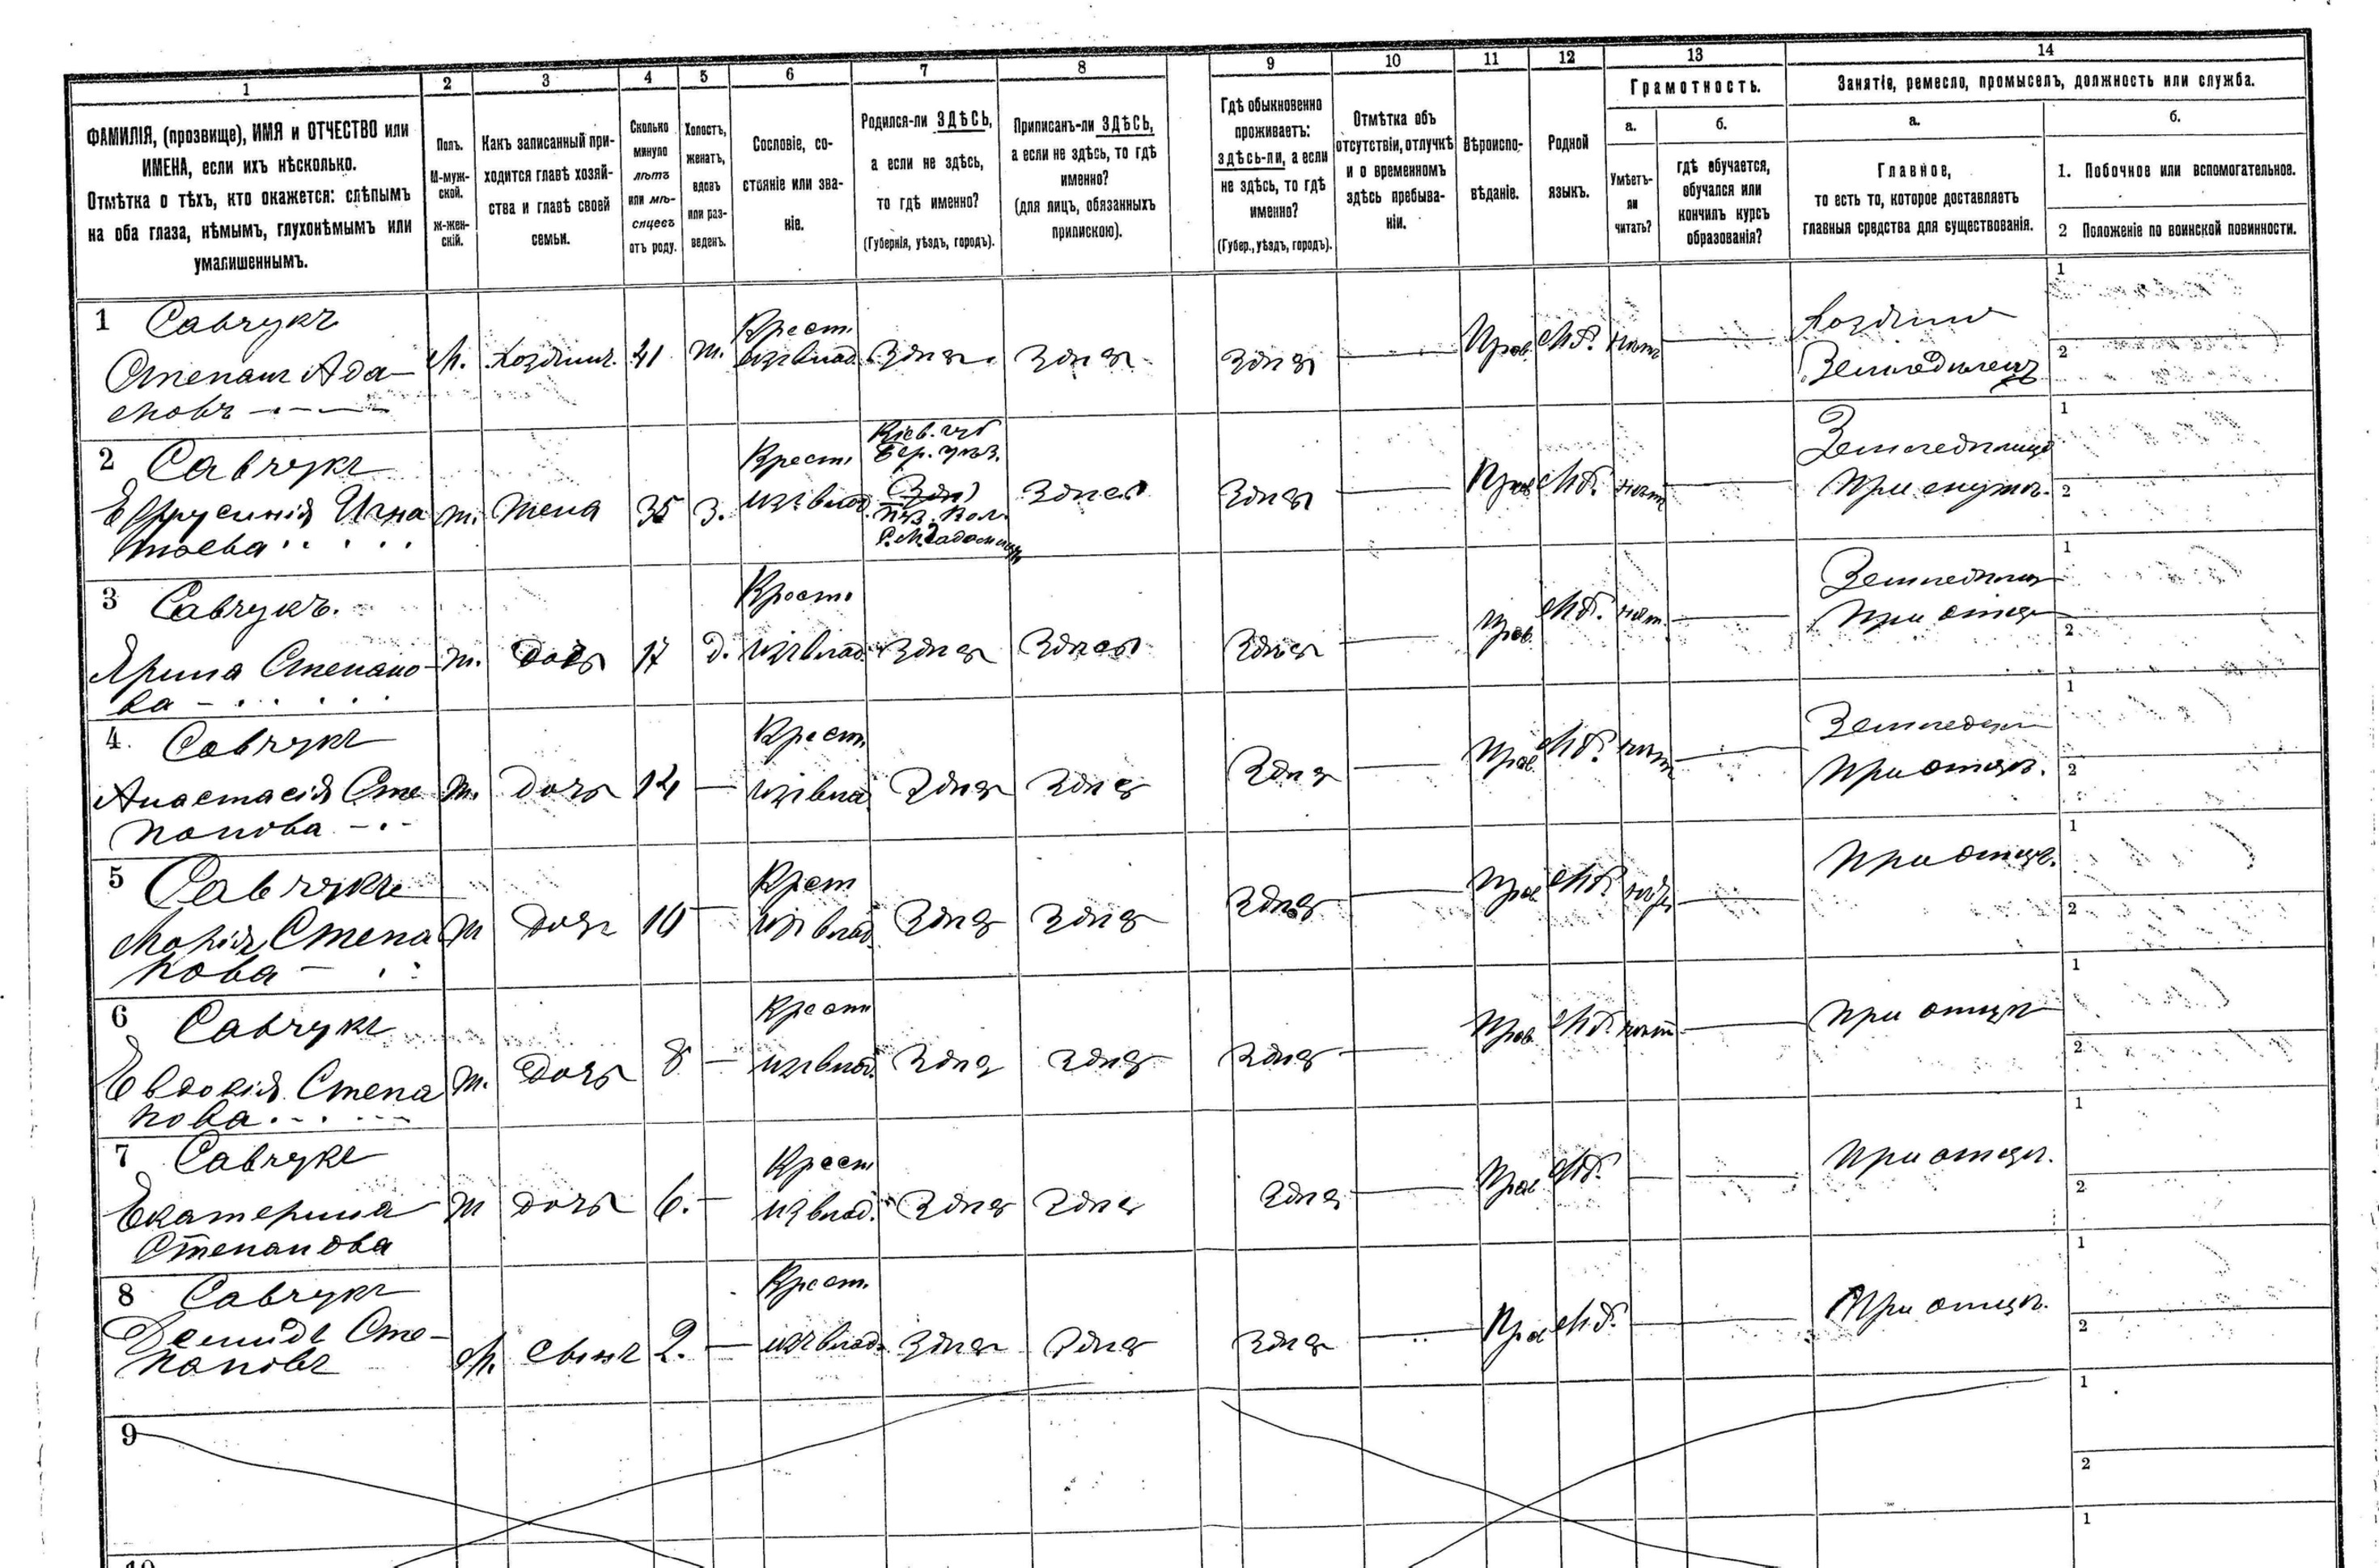 1 2 3 4 5 6 7 8 9 10 11 12 13 14
ФАМИЛІЯ, (прозвище), ИМЯ и ОТЧЕСТВО или
ИМЕНА, если ихъ нѣсколько.
Отмѣтка о тѣхъ, кто окажется: слѣпымъ
на оба глаза, нѣмымъ, глухонѣмымъ или
умалишеннымъ.
Полъ.
М-муж-
ской.
ж-жен-
скій.
Какъ записанный при-
ходится главѣ хозяй-
ства и главѣ своей
семьи.
Сколько
минуло
лѣтъ
или мѣ-
сяцевъ
отъ роду.
Холостъ,
женатъ,
вдовъ
или раз-
веденъ.
Сословіе, со-
стояніе или зва-
ніе.
Родился-ли ЗДѢСЬ,
а если не здѣсь,
то гдѣ именно?
(Губернія, уѣздъ, городъ).
Приписанъ-ли ЗДѢСЬ,
а если не здѣсь, то гдѣ
именно?
(для лицъ, обязанныхъ
припискою).
Гдѣ обыкновенно
проживаетъ:
здѣсь-ли, а если
не здѣсь, то гдѣ
именно?
(Губер., уѣздъ, городъ).
Отмѣтка объ
отсутствіи, отлучкѣ
и о временномъ
здѣсь пребыва-
ніи.
Вѣроиспо-
вѣданіе.
Родной
языкъ.
Грамотность.
а.
Умѣетъ-
ли
читать?
б.
гдѣ обучается,
обучался или
кончилъ курсъ
образованія?
Занятіе, ремесло, промыселъ, должность или служба.
а.
Главное,
то есть то, которое доставляетъ
главныя средства для существованія.
б.
1. Побочное или вспомогательное.
2 Положеніе по воинской повинности.
1 Савчукъ
Степанъ Ада-
мовъ
М. Хозяинъ 41 ж. Крест.
изъ влад. Здѣсь Здѣсь Здѣсь — Прав. Мл. нѣтъ —
Хозяинъ
Земледѣлецъ
1
2
2 Савчукъ
Ефрусинія Игна
тьева
ж. Жена 35 з. Крест.
изъ влад.
Кіев. губ
Бер. уѣз.
Здѣсь Здѣсь — Прав Мл. нѣтъ —
при мужѣ.
1
2
3 Савчукъ.
Ярина Степано-
ва
ж. дочь 17 д. Крест.
изъ влад. Здѣсь Здѣсь Здѣсь — Прав. Мл. нѣт. —
при отцѣ
1
2
4. Савчукъ
Анастасія Сте
панова
ж. дочь 14 — Крест.
изъ влад. Здѣсь Здѣсь Здѣсь — Прав Мл. нѣтъ —
при отцѣ.
1
2
5 Савчукъ
Марія Степа
нова
ж дочь 10 — Крест
изъ влад. Здѣсь Здѣсь Здѣсь — Прав Мл. —
при отцѣ.
1
2
6 Савчукъ
Евдокія Степа
нова
ж. дочь 8 — Крест
изъ влад. Здѣсь Здѣсь Здѣсь — Прав. Мл. нѣтъ —
при отцѣ
1
2
7 Савчукъ
Екатерина
Степанова
ж дочь 6. — Крест
изъ влад. Здѣсь Здѣсь Здѣсь — Прав Мл. — —
при отцѣ.
1
2
8 Савчукъ
Демидъ Сте-
пановъ
М. сынъ 2. — Крест.
изъ влад. Здѣсь Здѣсь Здѣсь — Прав Мл. —
При отцѣ.
1
2
9
1
2
10
1